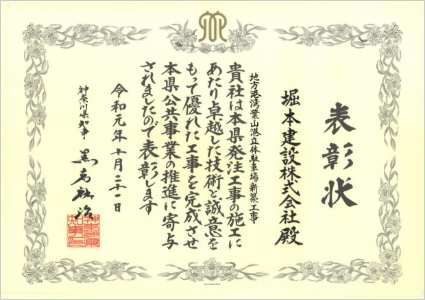 表彰状
堀本建設株式会社殿
地方港湾葉山港立体駐車場新築工事
貴社は本県発注工事の施工に
あたり卓越した技術と誠意を
もって優れた工事を完成させ
本県公共事業の推進に寄与
されましたので表彰します
令和元年十月二十一日
神奈川県知事 黒岩祐治